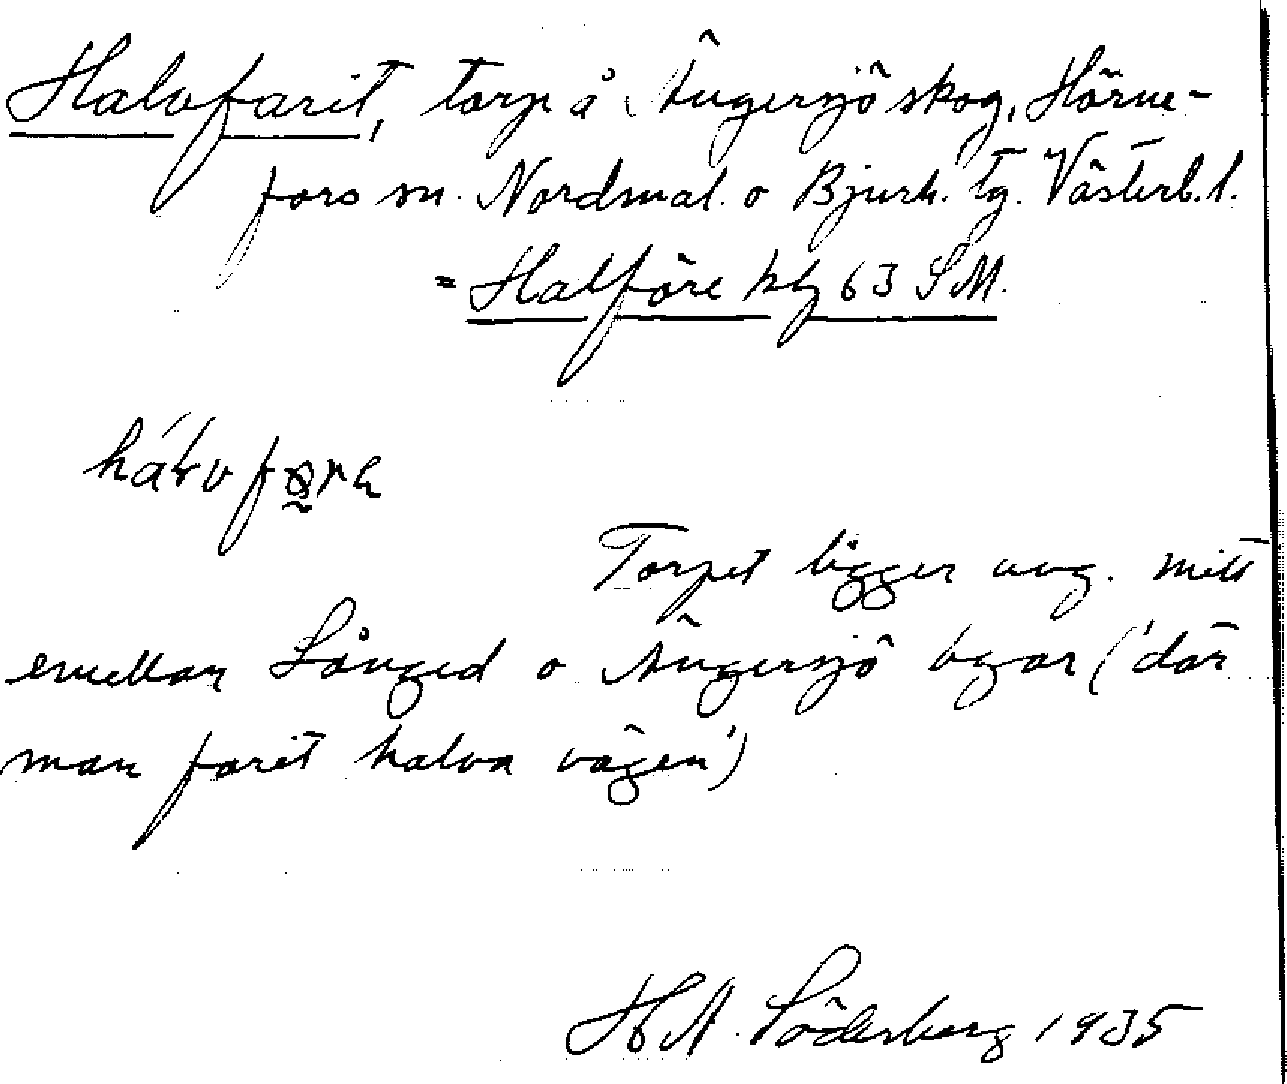 Halvfarit, torp å Ängersjö skog, Hörne-
fors sn. Nordmal. o Bjurh. tg. Västerb. l.
= Halföre hlg 63 SM.
hálvføre
Torpet ligger ung. mitt
emellan Långed o Ängersjö byar ('där
man farit halva vägen')
H A. Söderberg 1935